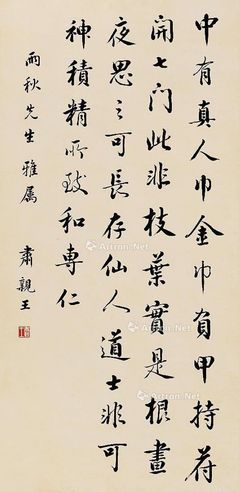 中有真人巾金巾負甲持符
開七門此非枝葉實是根晝
夜思之可長存仙人道士非可
神積精所致和專仁
雨秋先生雅属
肅親王
Artron.Net
Artron.Net